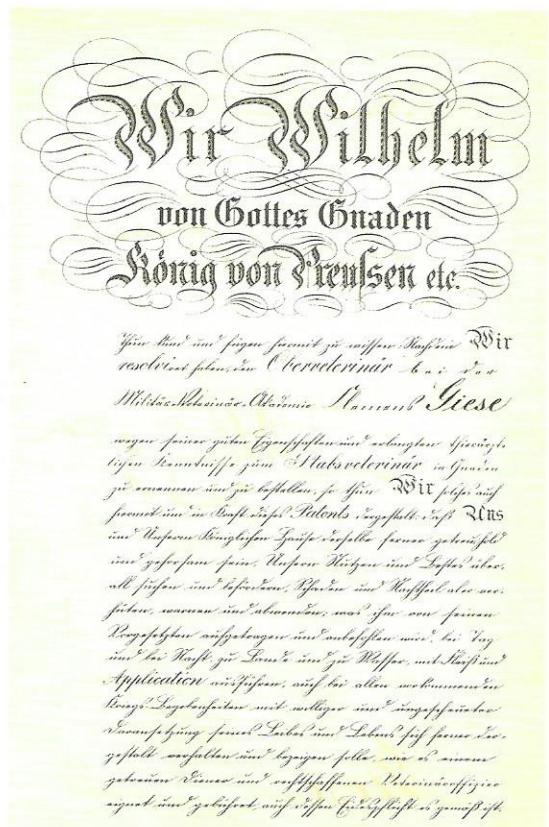 Wir Wilhelm
von Gottes Gnaden
König von Preußen etc.
Thun kund und fügen hiermit zu wissen: Nachdem Wir
resolviret haben, den Oberveterinär bei der
Militär-Veterinär-Akademie Clemens Giese
wegen seiner guten Eigenschaften und erlangten thierärzt-
lichen Kenntnisse zum Stabsveterinär in Gnaden
zu ernennen und zu bestellen, so thun Wir solches auch
hiermit und in Kraft dieses Patents dergestalt, daß Uns
und Unserm Königlichen Hause derselbe ferner getreu, hold
und gehorsam sein, Unsern Nutzen und Bestes über-
all suchen und befördern, Schaden und Nachtheil aber ver-
hüten, warnen und abwenden; was ihm von seinen
Vorgesetzten aufgetragen und anbefohlen wird, bei Tag
und bei Nacht, zu Lande und zu Wasser, mit Fleiß und
Application ausführen, auch bei allen vorkommenden
Kriegs-Begebenheiten mit williger und ungescheueter
Daransetzung seines Leibes und Lebens sich ferner der-
gestalt verhalten und bezeigen solle, wie es einem
getreuen Diener und rechtschaffenen Veterinäroffizier
eignet und gebühret, auch dessen Eidespflicht es gemäß ist.